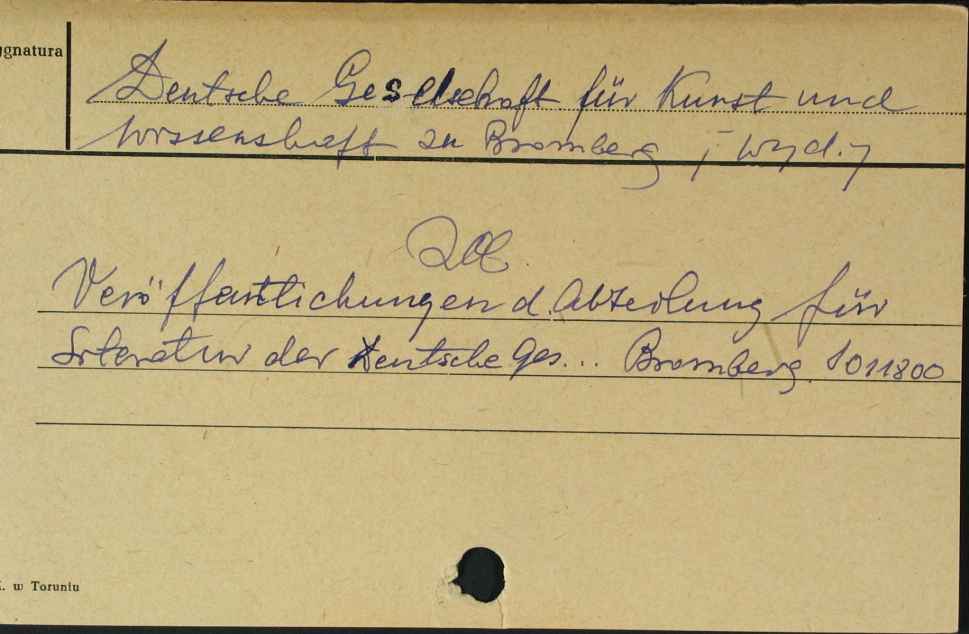 ygnatura
Deutsche Gesellschaft für Kunst und
Wissenshaft zu Bromberg ; wyd. ;
zob.
Veröffentlichungen d. Abteilung für
Literatur der Deutsche Ges... Bromberg 1011800
. w Toruniu